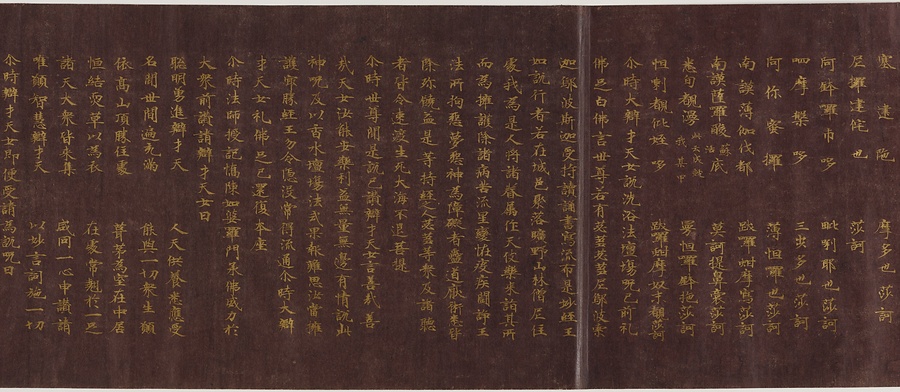 塞建陀　摩多也莎訶
尼攞建佗也　莎訶
阿鉢囉市哆　毗㗚耶也莎訶
呬摩槃哆　三步多也莎訶
阿你蜜攞　薄怛囉也莎訶
南謨薄伽伐都　跋囉甜摩寫莎訶
南謨薩囉酸蘇活底　莫訶提鼻裔莎訶
悉甸覩漫此云成就我某甲　曼怛囉鉢拖莎訶
怛剌覩仳姪哆　跋囉甜摩奴末覩莎訶
尒時大辯才天女說洗浴法壇場呪已前礼
佛足白佛言世尊若有苾芻苾芻尼鄔波索
迦鄔波斯迦受持讀誦書寫流布是妙經王
如說行者若在城邑聚落曠野山林僧尼住
處我為是人將諸眷屬作天伎樂來詣其所
而為擁護除諸病苦流星變怪疫疾鬪諍王
法所拘惡夢惡神為障礙者蠱道厭術悉皆
除殄饒益是等持經之人苾芻等衆及諸聽
者皆令速渡生死大海不退菩提
尒時世尊聞是說已讚辯才天女言善哉善
哉天女汝能安樂利益無量無邊有情說此
神呪及以香水壇場法式果報難思汝當擁
護最勝經王勿令隱沒常得流通尒時大辯
才天女礼佛足已還復本座
尒時法師授記憍陳如婆羅門承佛威力於
大衆前讚請辯才天女曰
聰明勇進辯才天　人天供養悉應受
名聞世間遍充滿　能與一切衆生願
依高山頂勝住處　葺茅為室在中居
恒結耎草以為衣　在處常翹於一足
諸天大衆皆來集　咸同一心申讚請
唯願智慧辯才天　以妙言詞施一切
尒時辯才天女即便受請為說呪曰